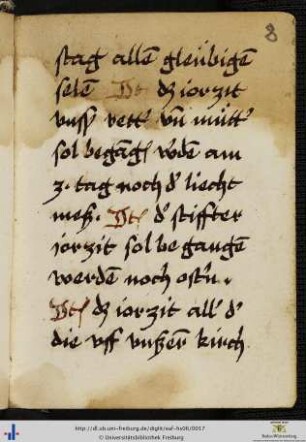 8
stag allē gleubigē
selē Itē dz iorzit
vnser vett' vn̄ mu̇tt'
sol begāgē w'dē am
3. tag noch d' liecht
mess. Itē d' stiffter
iorzit sol be gangē
werden noch ostn̄.
Itē dz iorzit all' d'
die vff vnserē kirch
http://dl.ub.uni-freiburg.de/diglit/
© Universitätsbibliothek Freiburg
Baden-Württemberg